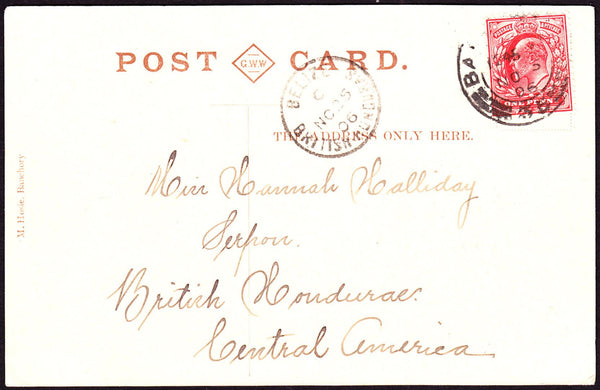 POST G.W.W CARD.
BELIZE
C
NO 25
06
BRITISH HONDURAS
BA
NO 2
06
POSTAGE REVENUE
ONE PENNY
THE ADDRESS ONLY HERE.
M. Howie, Banchory
Miss Hannah Halliday
Serpon.
British Honduras.
Central America